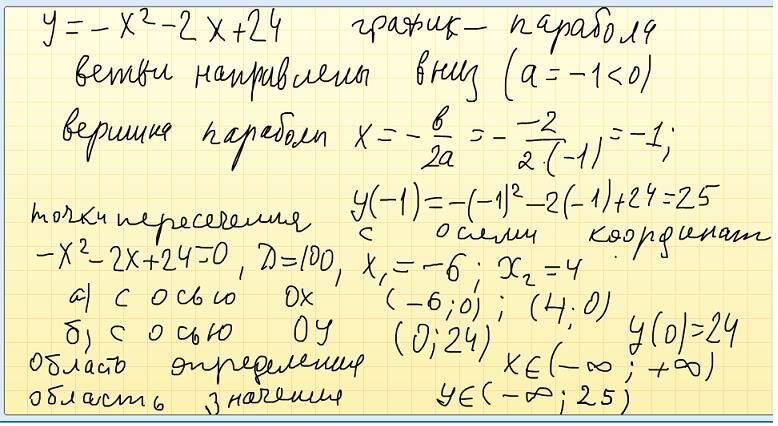 y = -x² - 2x + 24 график - парабола
ветви направлены вниз (a = -1 < 0)
вершина параболы x = -в/2a = - -2/2·(-1) = -1;
y(-1) = -(-1)² - 2(-1) + 24 = 25
точки пересечения с осями координат
-x² - 2x + 24 = 0, D = 100, x₁ = -6; x₂ = 4
а) с осью OX (-6; 0); (4; 0)
б) с осью OY (0; 24) y(0) = 24
область определения x∈(-∞; +∞)
область значения y∈(-∞; 25)